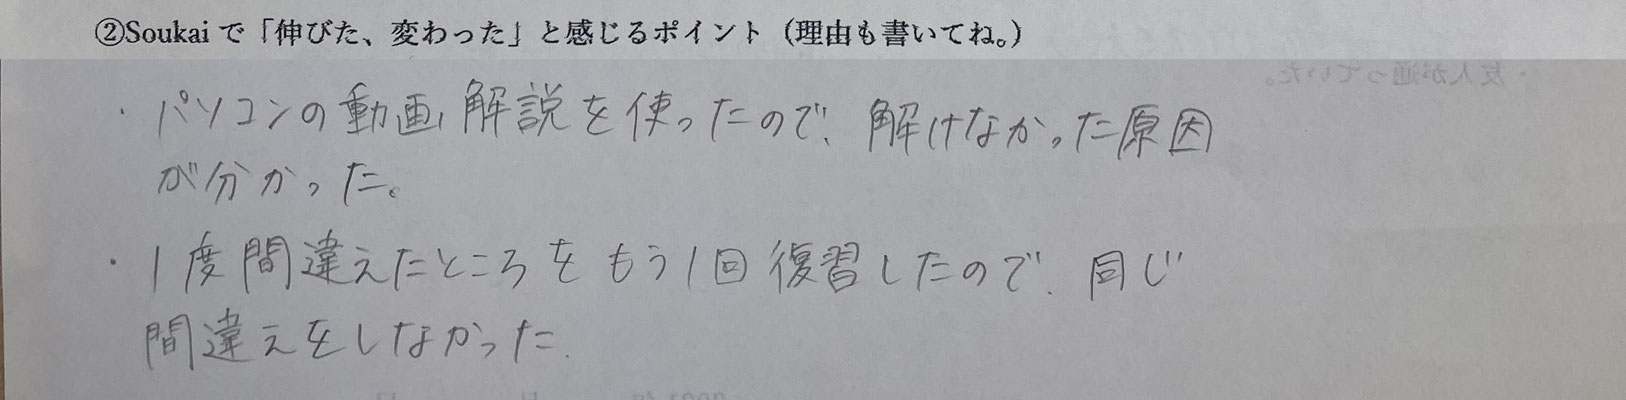 ②Soukaiで「伸びた、変わった」と感じるポイント（理由も書いてね。）
・パソコンの動画解説を使ったので、解けなかった原因
が分かった。
・1度間違えたところをもう1回復習したので、同じ
間違えをしなかった.
・友人が通っていた。